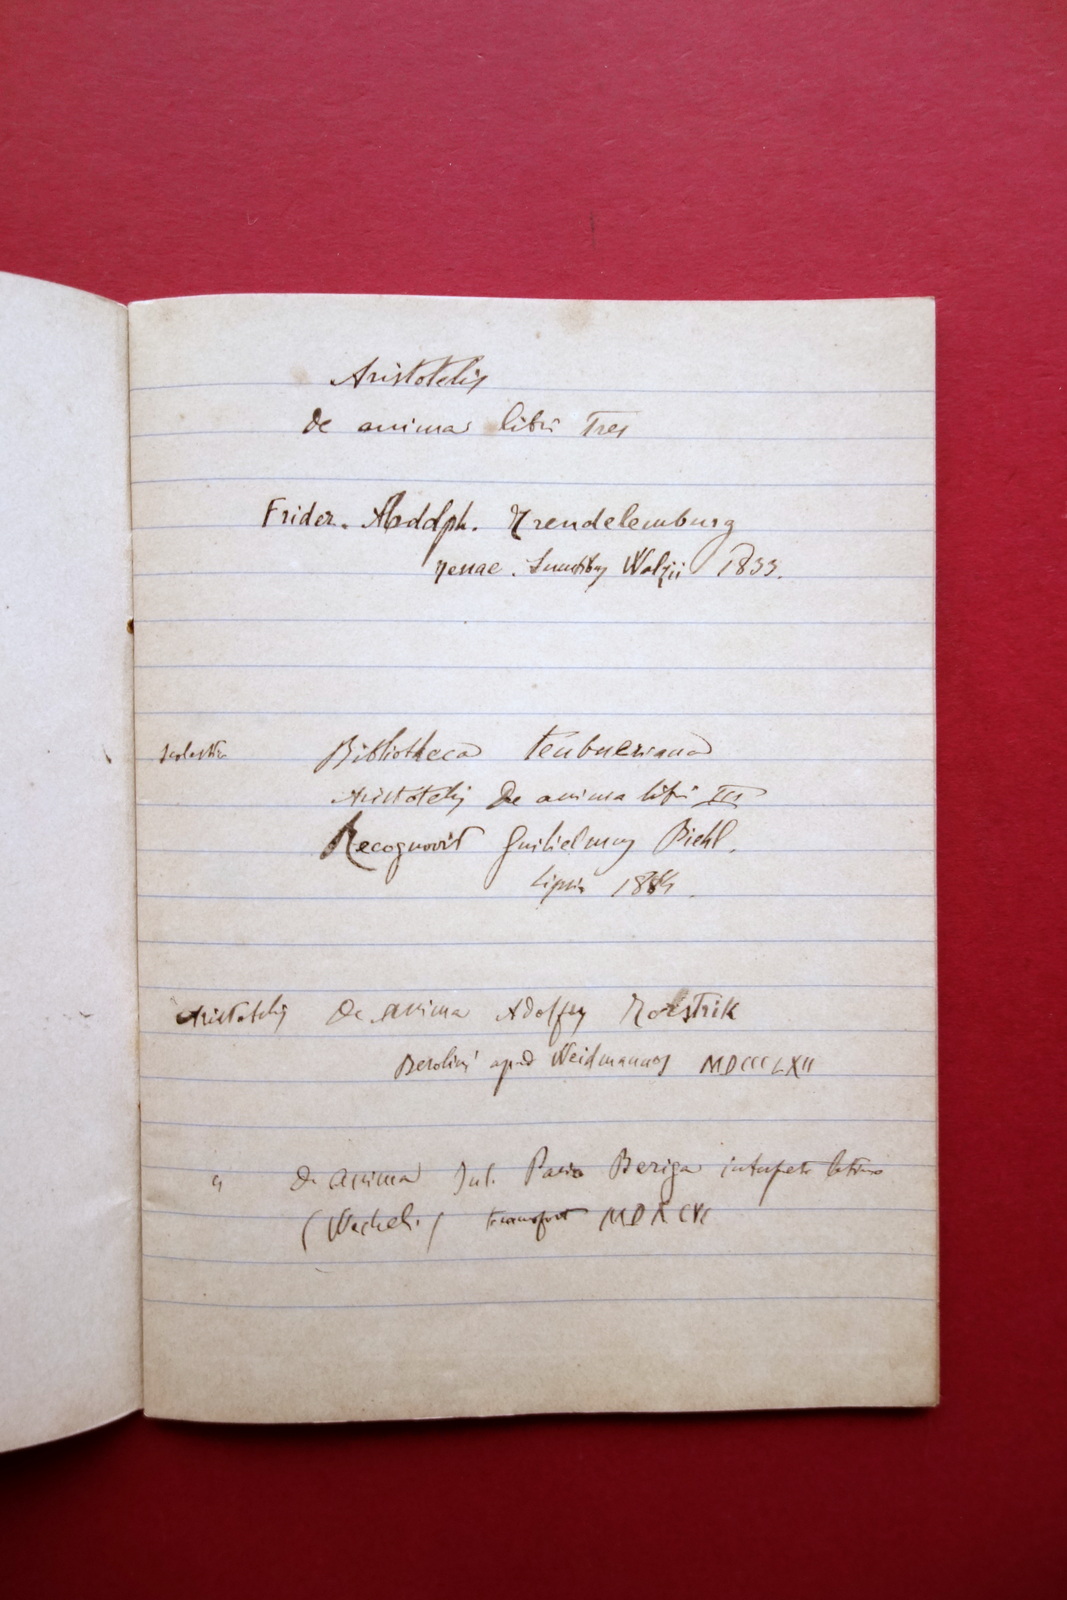 Aristotelis
De anima libri Tres
Frider. Adolph. Trendelemburg
Jenae. Sumtibus Walzii 1833.
Bibliotheca Teubneriana
Aristotelis De anima libri III
Recognovit Guilielmus Biehl.
Lipsiae 1884.
Aristotelis De anima Adolfus Torstrik
Berolini apud Weidmannos MDCCCLXII
" De anima Jul. Pacio Beriga interprete
(Wechel.) MDXCVI